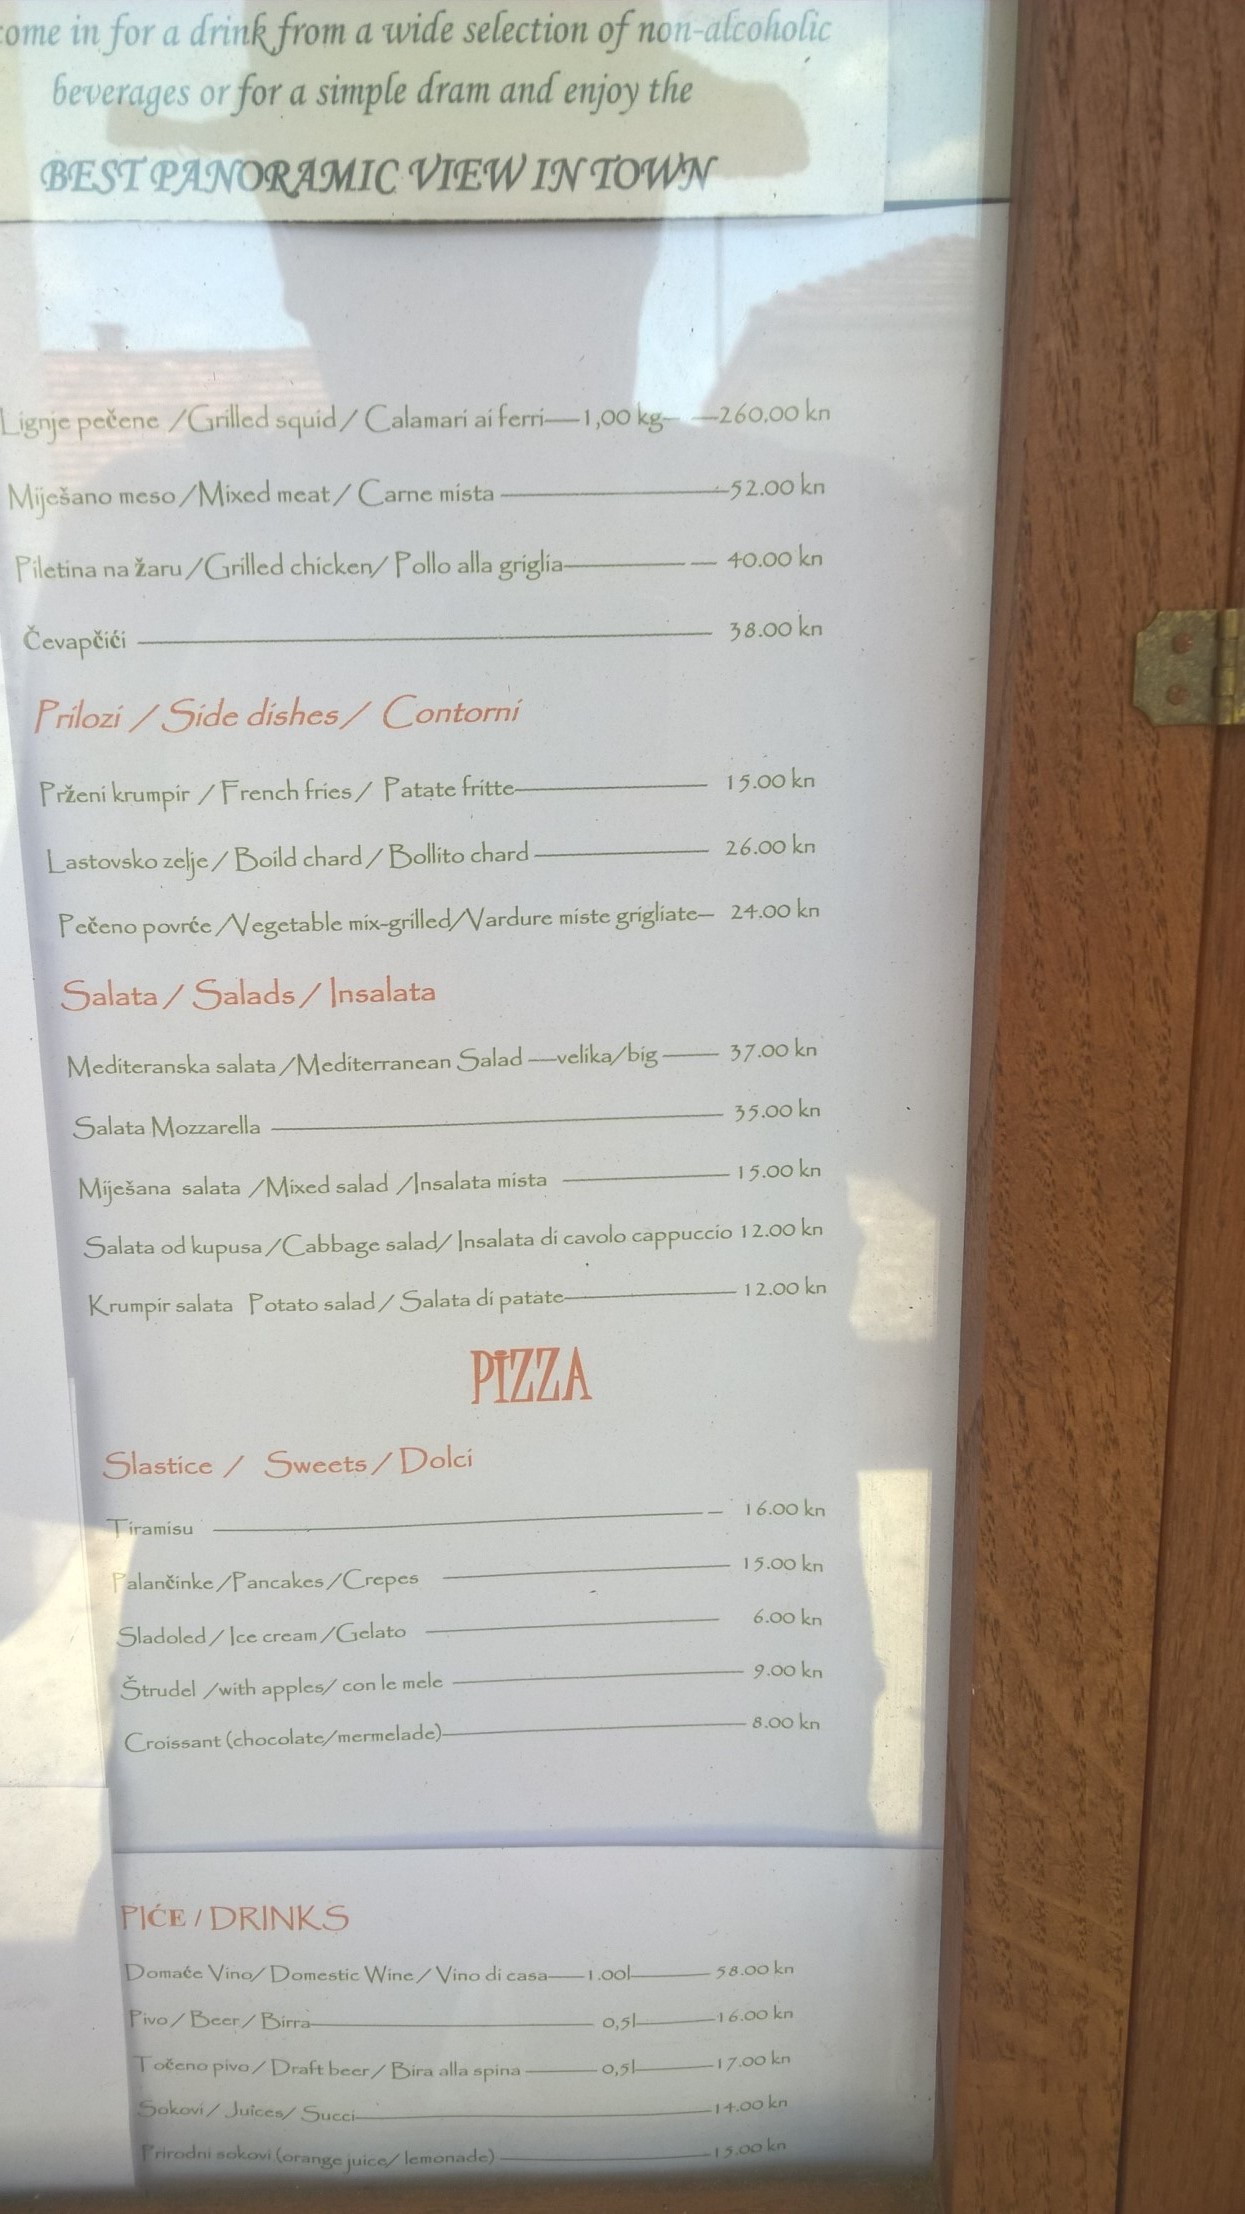 come in for a drink from a wide selection of non-alcoholic
beverages or for a simple dram and enjoy the
BEST PANORAMIC VIEW IN TOWN
Lignje pečene /Grilled squid / Calamari ai ferri—1,00 kg- —260,00 kn
Miješano meso /Mixed meat / Carne mista —52.00 kn
Piletina na žaru /Grilled chicken/ Pollo alla griglia— — 40.00 kn
Čevapčići — 38.00 kn
Prilozi / Side dishes / Contorni
Prženi krumpir / French fries / Patate fritte— 15.00 kn
Lastovsko zelje / Boild chard / Bollito chard — 26.00 kn
Pečeno povrće /Vegetable mix-grilled/Vardure miste grigliate— 24.00 kn
Salata / Salads / Insalata
Mediteranska salata /Mediterranean Salad —velika/big — 37.00 kn
Salata Mozzarella — 35.00 kn
Miješana salata /Mixed salad /Insalata mista — 15.00 kn
Salata od kupusa /Cabbage salad/ Insalata di cavolo cappuccio 12.00 kn
Krumpir salata Potato salad / Salata di patate— 12.00 kn
PIZZA
Slastice / Sweets / Dolci
Tiramisu — — 16.00 kn
Palančinke /Pancakes /Crepes — 15.00 kn
Sladoled / Ice cream /Gelato — 6.00 kn
Štrudel /with apples/ con le mele — 9.00 kn
Croissant (chocolate/mermelade)— 8.00 kn
PIĆE / DRINKS
Domaće Vino/ Domestic Wine / Vino di casa—1.00l— 58.00 kn
Pivo / Beer / Birra— 0,5l—16.00 kn
Točeno pivo / Draft beer / Bira alla spina — 0,5l—17.00 kn
Sokovi / Juices/ Succi—14.00 kn
Prirodni sokovi (orange juice/ lemonade) —15.00 kn